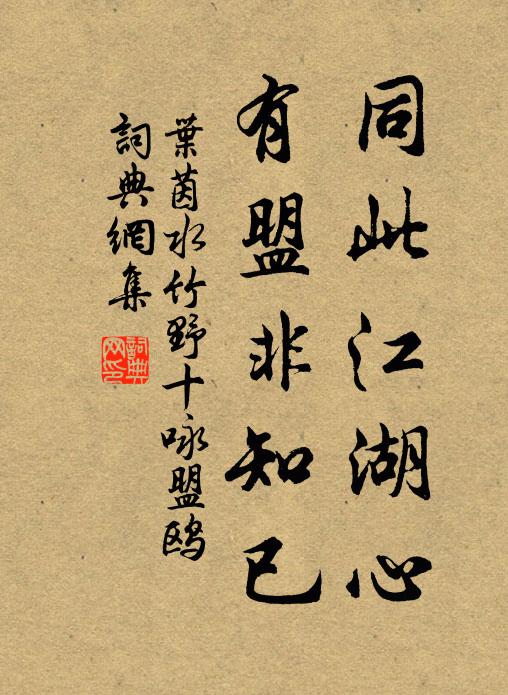 同此江湖心
有盟非知已
葉茵水竹野十咏盟鸥
詞典網集
詞典网印